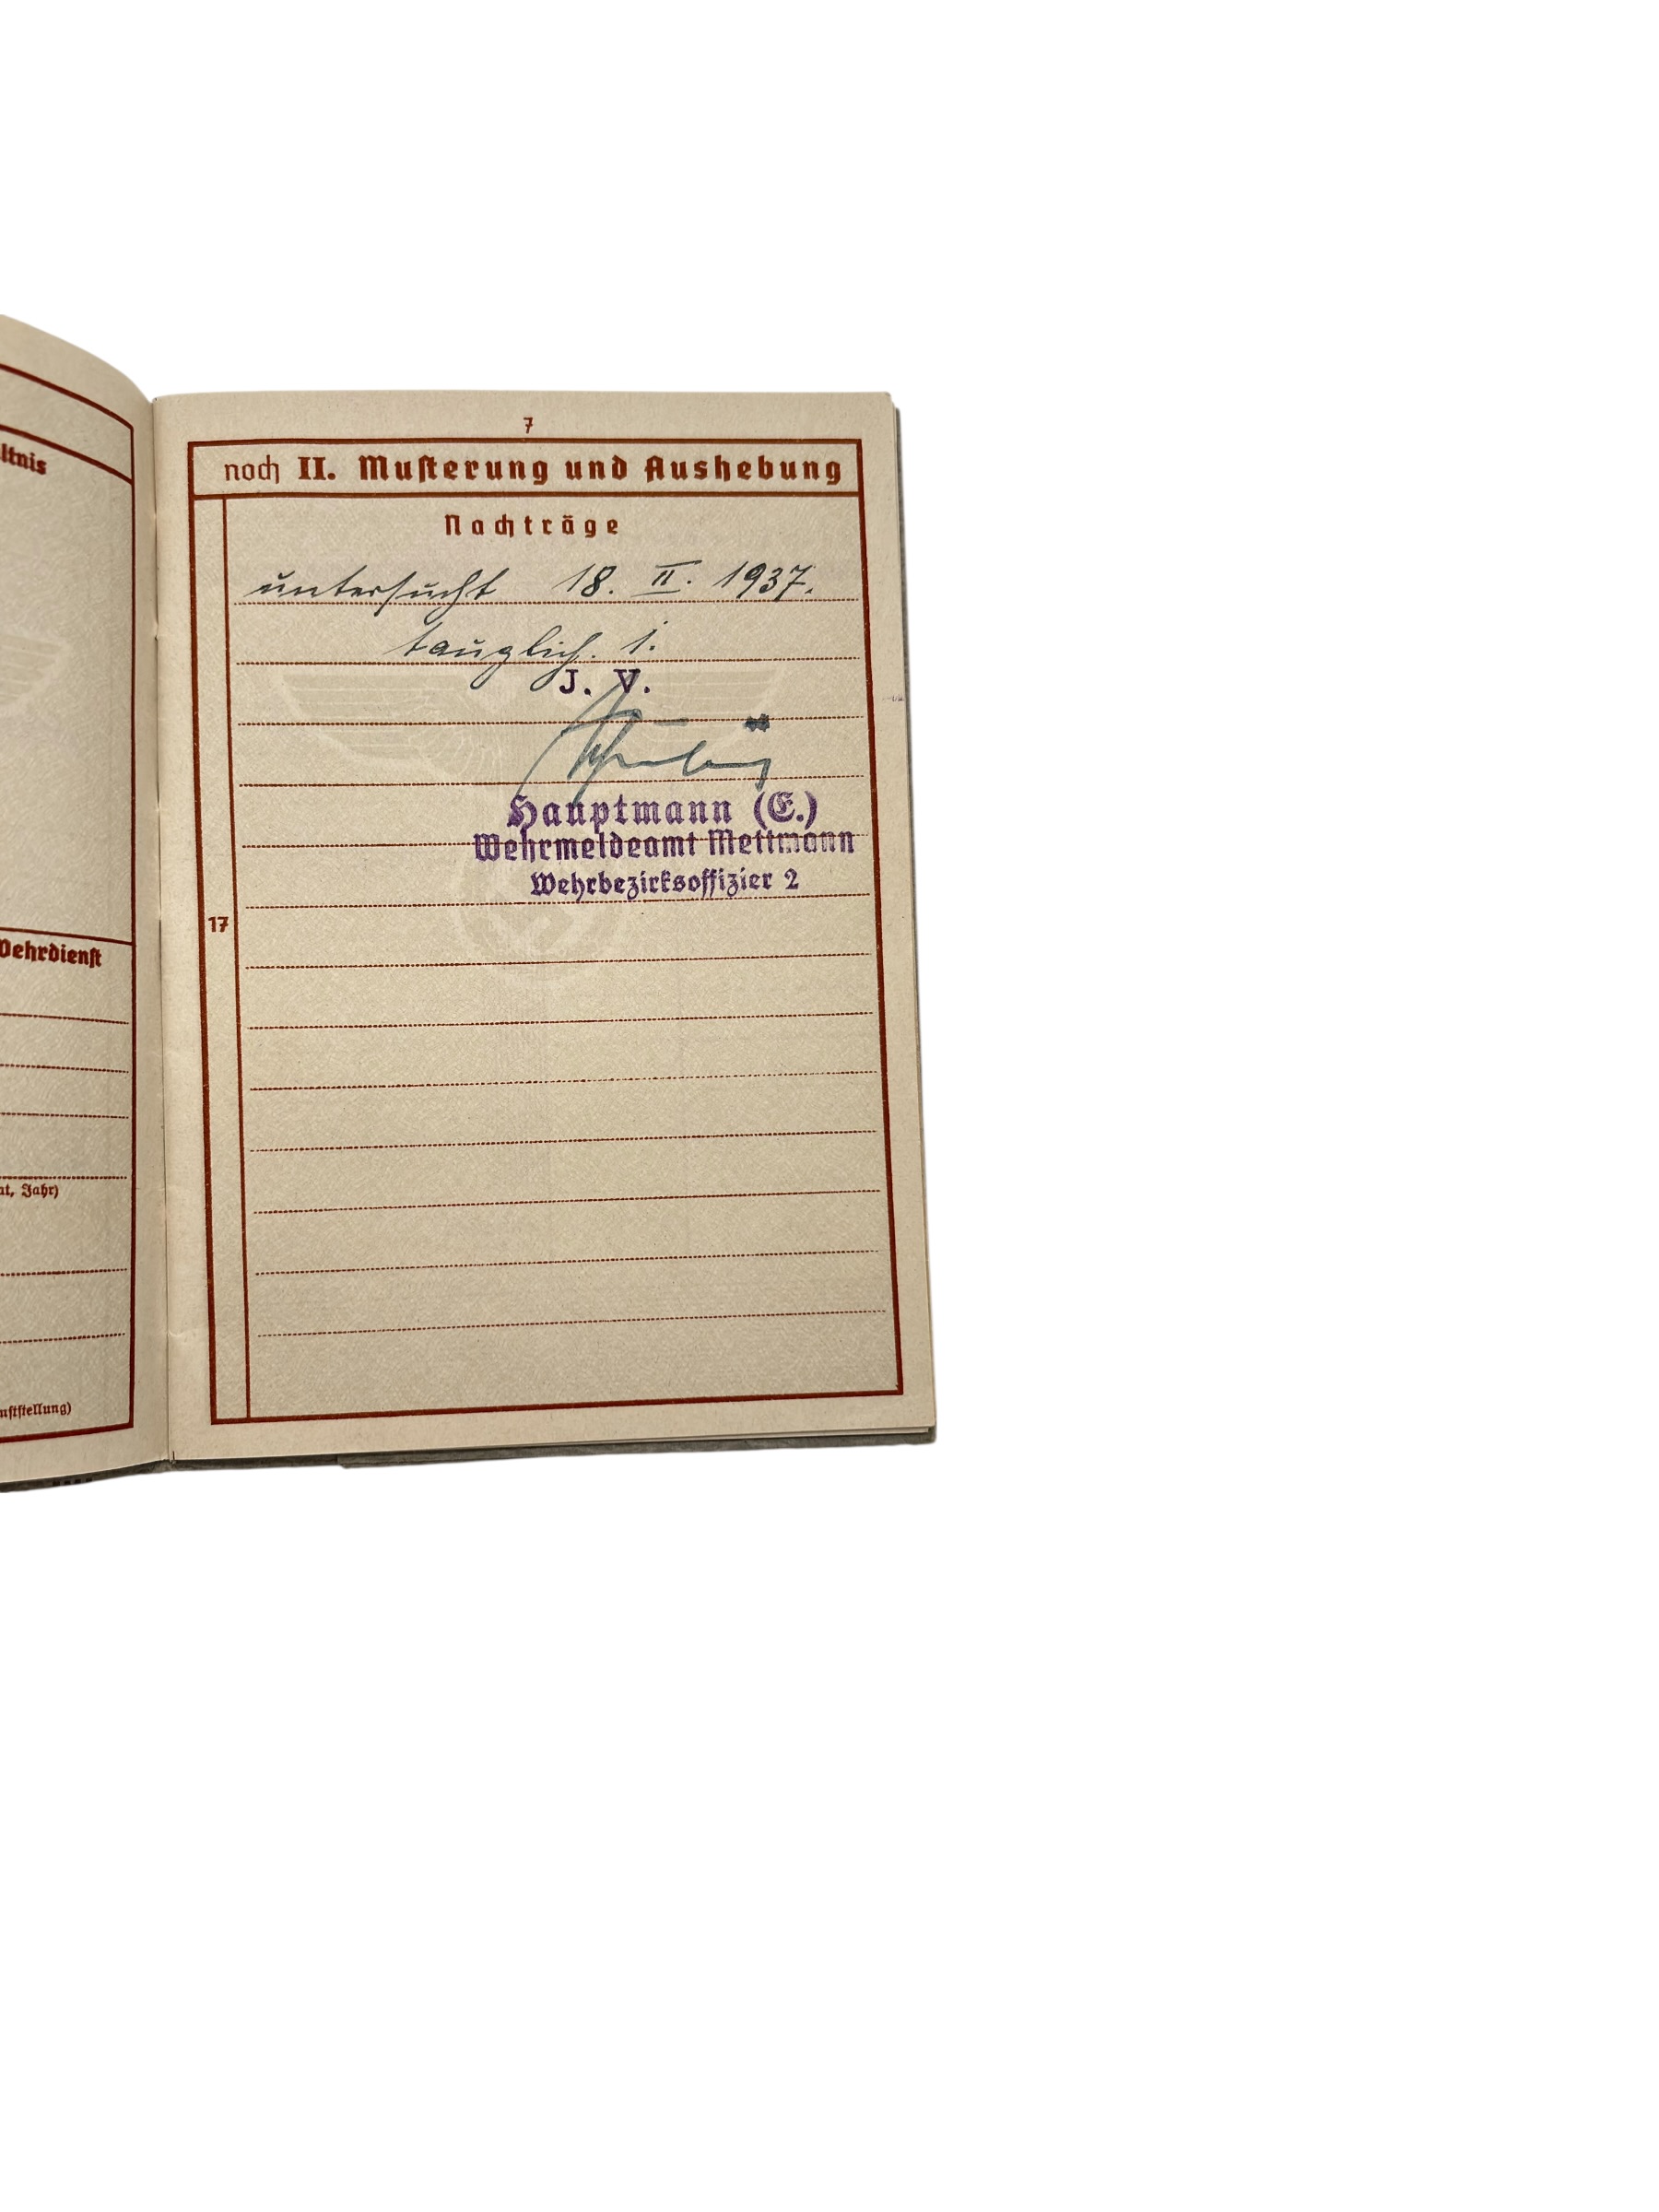 ltnis
Wehrdienst
at, Jahr)
nststellung)
7
noch II. Musterung und Aushebung
Nachträge
untersucht 18. II. 1937.
tauglich. 1.
J. V.
Hauptmann (E.)
Wehrmeldeamt Mettmann
Wehrbezirksoffizier 2
17